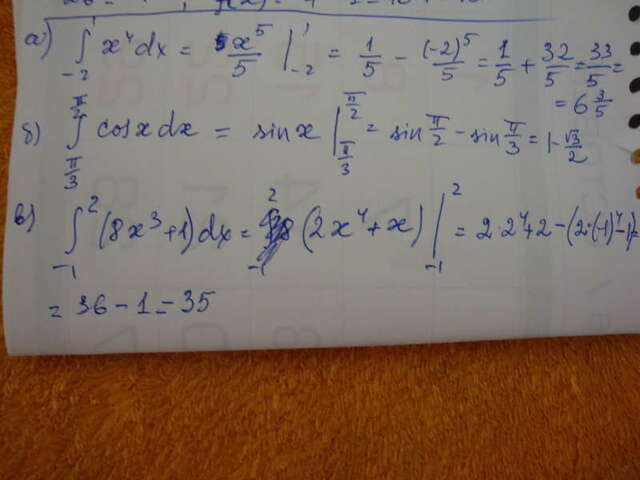 а) ∫₋₂¹ x⁴dx = x⁵/5 |₋₂¹ = 1/5 - (-2)⁵/5 = 1/5 + 32/5 = 33/5 =
= 6 3/5
б) ∫_{π/3}^{π/2} cosx dx = sinx |_{π/3}^{π/2} = sin π/2 - sin π/3 = 1 - √3/2
в) ∫₋₁² (8x³+1)dx = (2x⁴+x) |₋₁² = 2·2⁴+2-(2·(-1)⁴-1)=
= 36 - 1 = 35